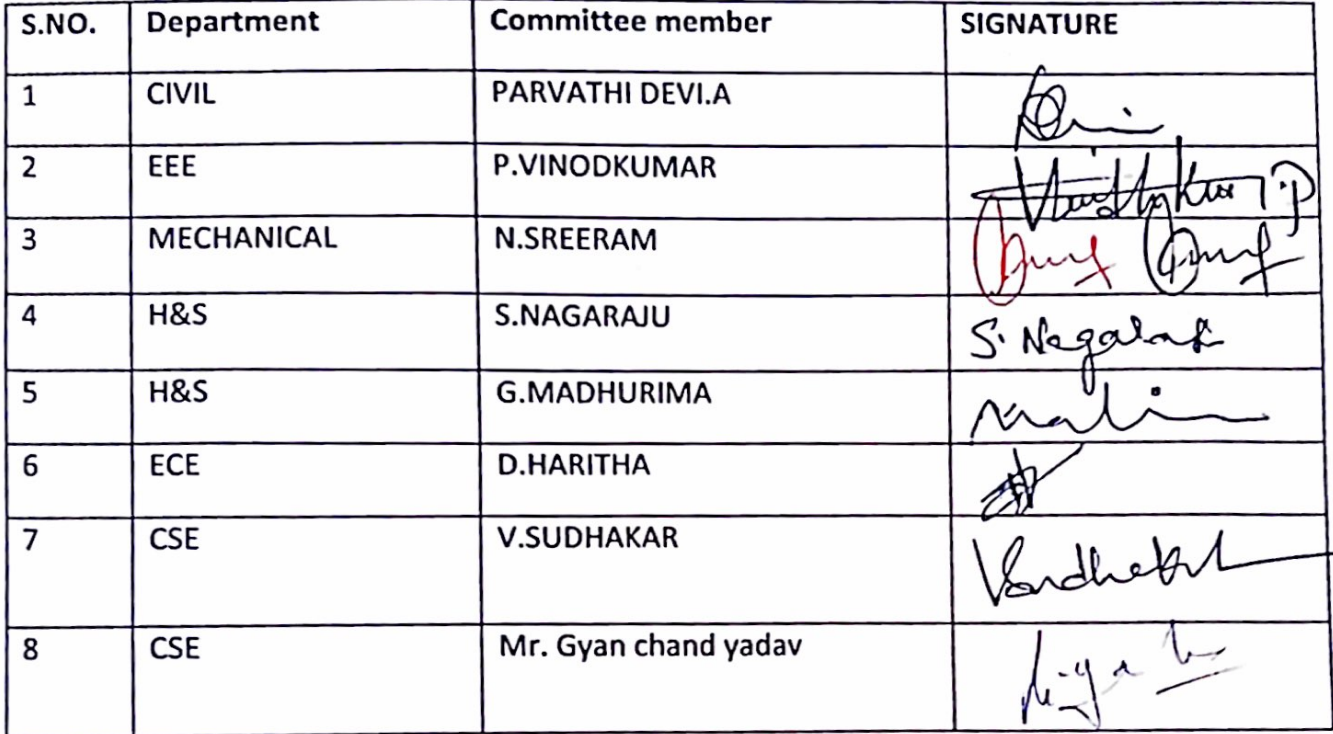 S.NO. Department Committee member SIGNATURE
1 CIVIL PARVATHI DEVI.A
2 EEE P.VINODKUMAR
3 MECHANICAL N.SREERAM
4 H&S S.NAGARAJU
5 H&S G.MADHURIMA
6 ECE D.HARITHA
7 CSE V.SUDHAKAR
8 CSE Mr. Gyan chand yadav